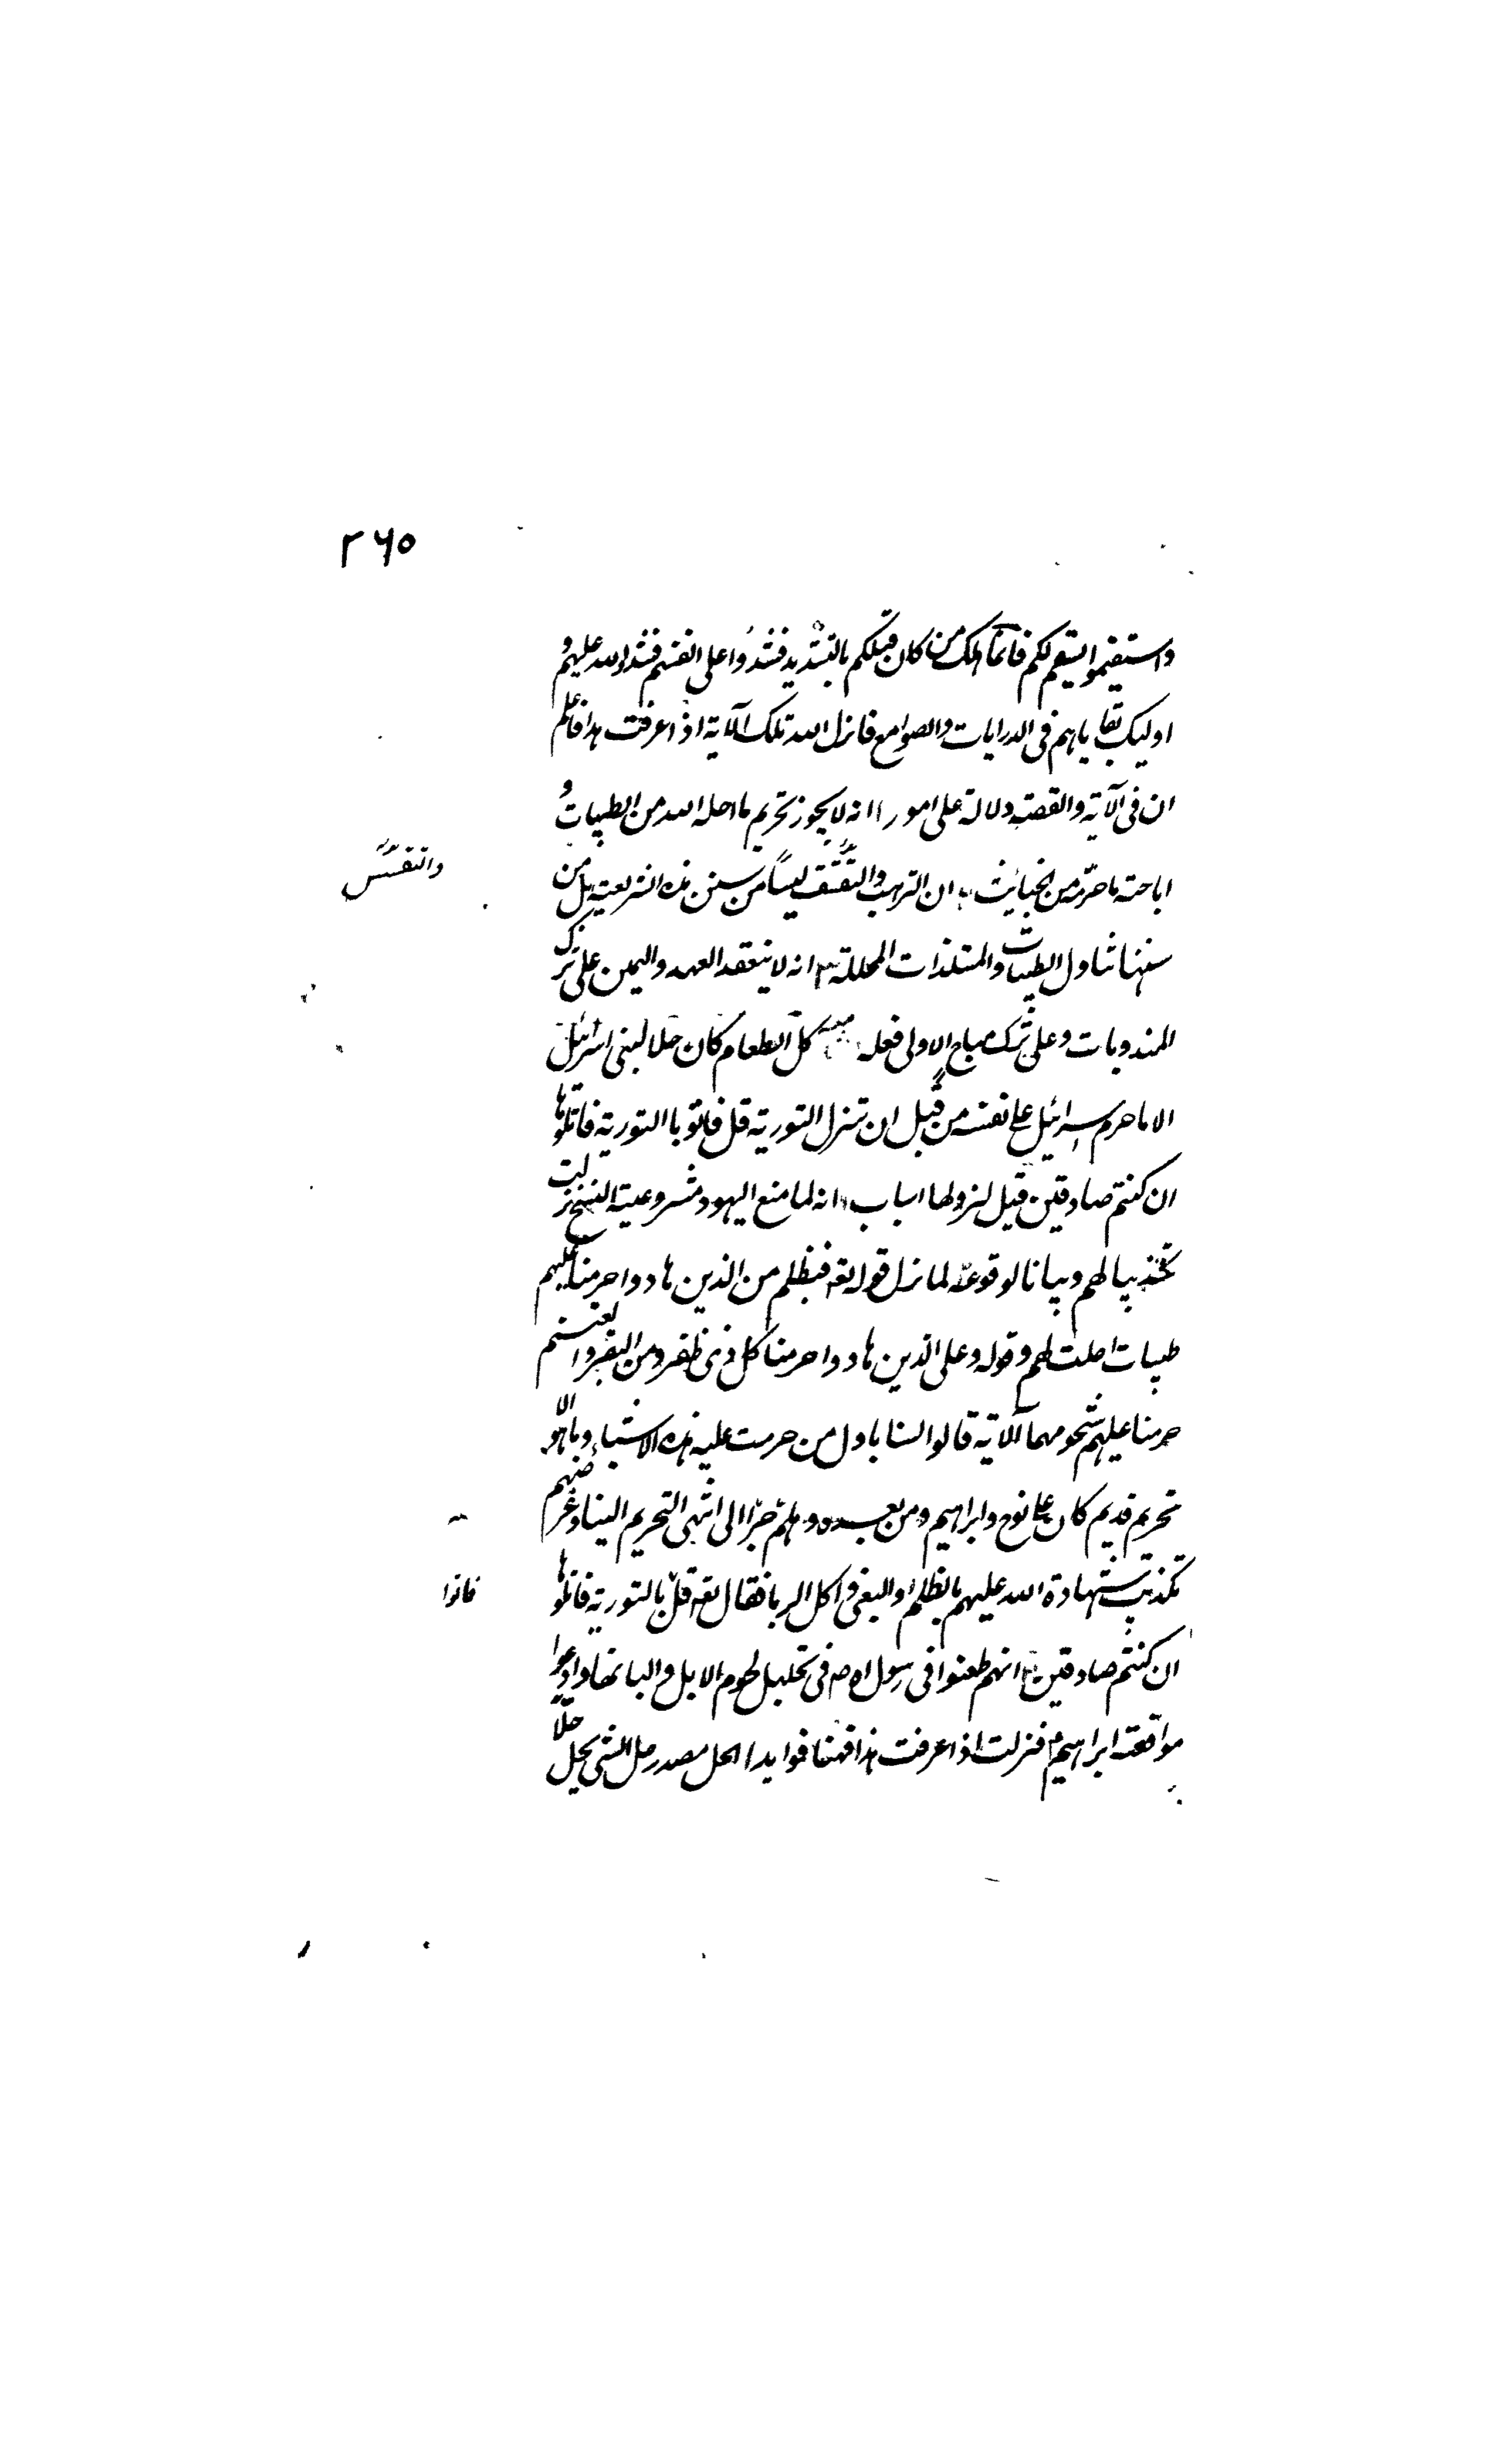 ٢٦٥
واستقيموا يستقم لكم فانما هلك من كان قبلكم بالتشديد فشددوا على انفسهم فشدد الله عليهم و
اوليك بقاياهم فى الديارات والصوامع فانزل الله تلك الآية اذا عرفت هذا فاعلم
ان فى الآية والقصة دلالة على امور ا انه لا يجوز تحريم ما احله الله من الطيبات و
اباحة ما حرمه من الخبائث ٢ ان الترهب والتقشف ليسا من سنن هذه الشريعة بل من
والتقشف
سننها تناول الطيبات والمستلذات المحللة ٣ انه لا ينعقد العهد واليمين على ترك
المندوبات وعلى ترك مباح الاولى فعله كل الطعام كان حلا لبنى اسرائيل
الا ما حرم اسرائيل على نفسه من قبل ان تنزل التورية قل فاتوا باالتورية فاتلوها
ان كنتم صادقين قيل لنزولها اسباب ا انه لما منع اليهود مشروعية النسخ نزلت
تكذيبا لهم وبيانا لوقوعه لما نزل قوله تعه فبظلم من الذين هادوا حرمنا عليهم
طيبات احلت لهم وقوله وعلى الذين هادوا حرمنا كل ذى ظفر ومن البقر والغنم
حرمنا عليهم شحومهما الآية قالوا لسنا باول من حرمت عليه هذه الاشياء وما هو الا
تحريم قديم كان على نوح وابراهيم ومن بعده وهلم جرا الى انتهى التحريم الينا وغرضهم
تكذيب شهادة الله عليهم بالظلم والبغى واكل الربا فقال تعه قل بالتورية فاتلوها
فاتوا
ان كنتم صادقين ٣ انهم طعنوا فى رسول الله ص فى تحليل لحوم الابل والبانها وادعوا
موافقة ابراهيم فنزلت اذا عرفت هذا فهنا فوايد ا الحل مصدر حل الشئ يحل حلا